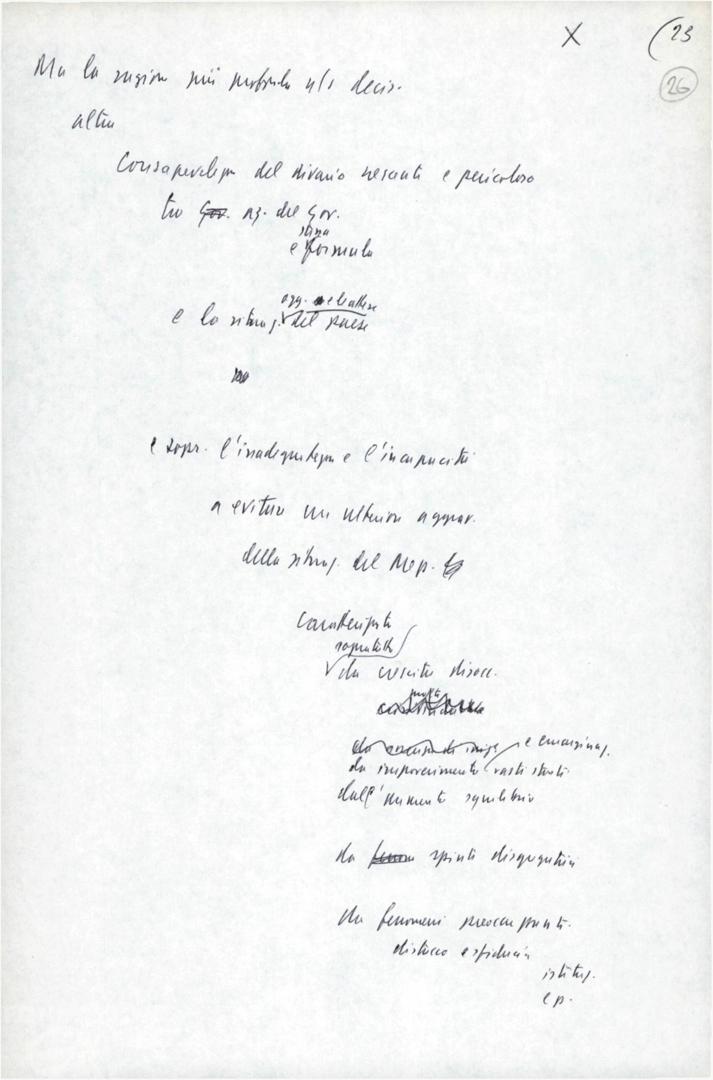 X (23
26
Ma la ragion più profonda n/s decis.
altra
Consapevolezza del divario crescente e pericoloso
tra Gov. az. del Gov.
stessa
e formula
agg. e le attese
e la situaz. del paese
e sopr. l'inadeguatezza e l'incapacità
a evitare un ulterior aggrav.
della situaz. del Mezz.
Caratterizzata
soprattutto
da crescita disocc.
e emarginaz.
da impoverimento vasti strati
dall'aumento squilibrio
da spinte disgregatrici
da fenomeni preoccupanti
distacco e sfiducia
istituz.
e p.